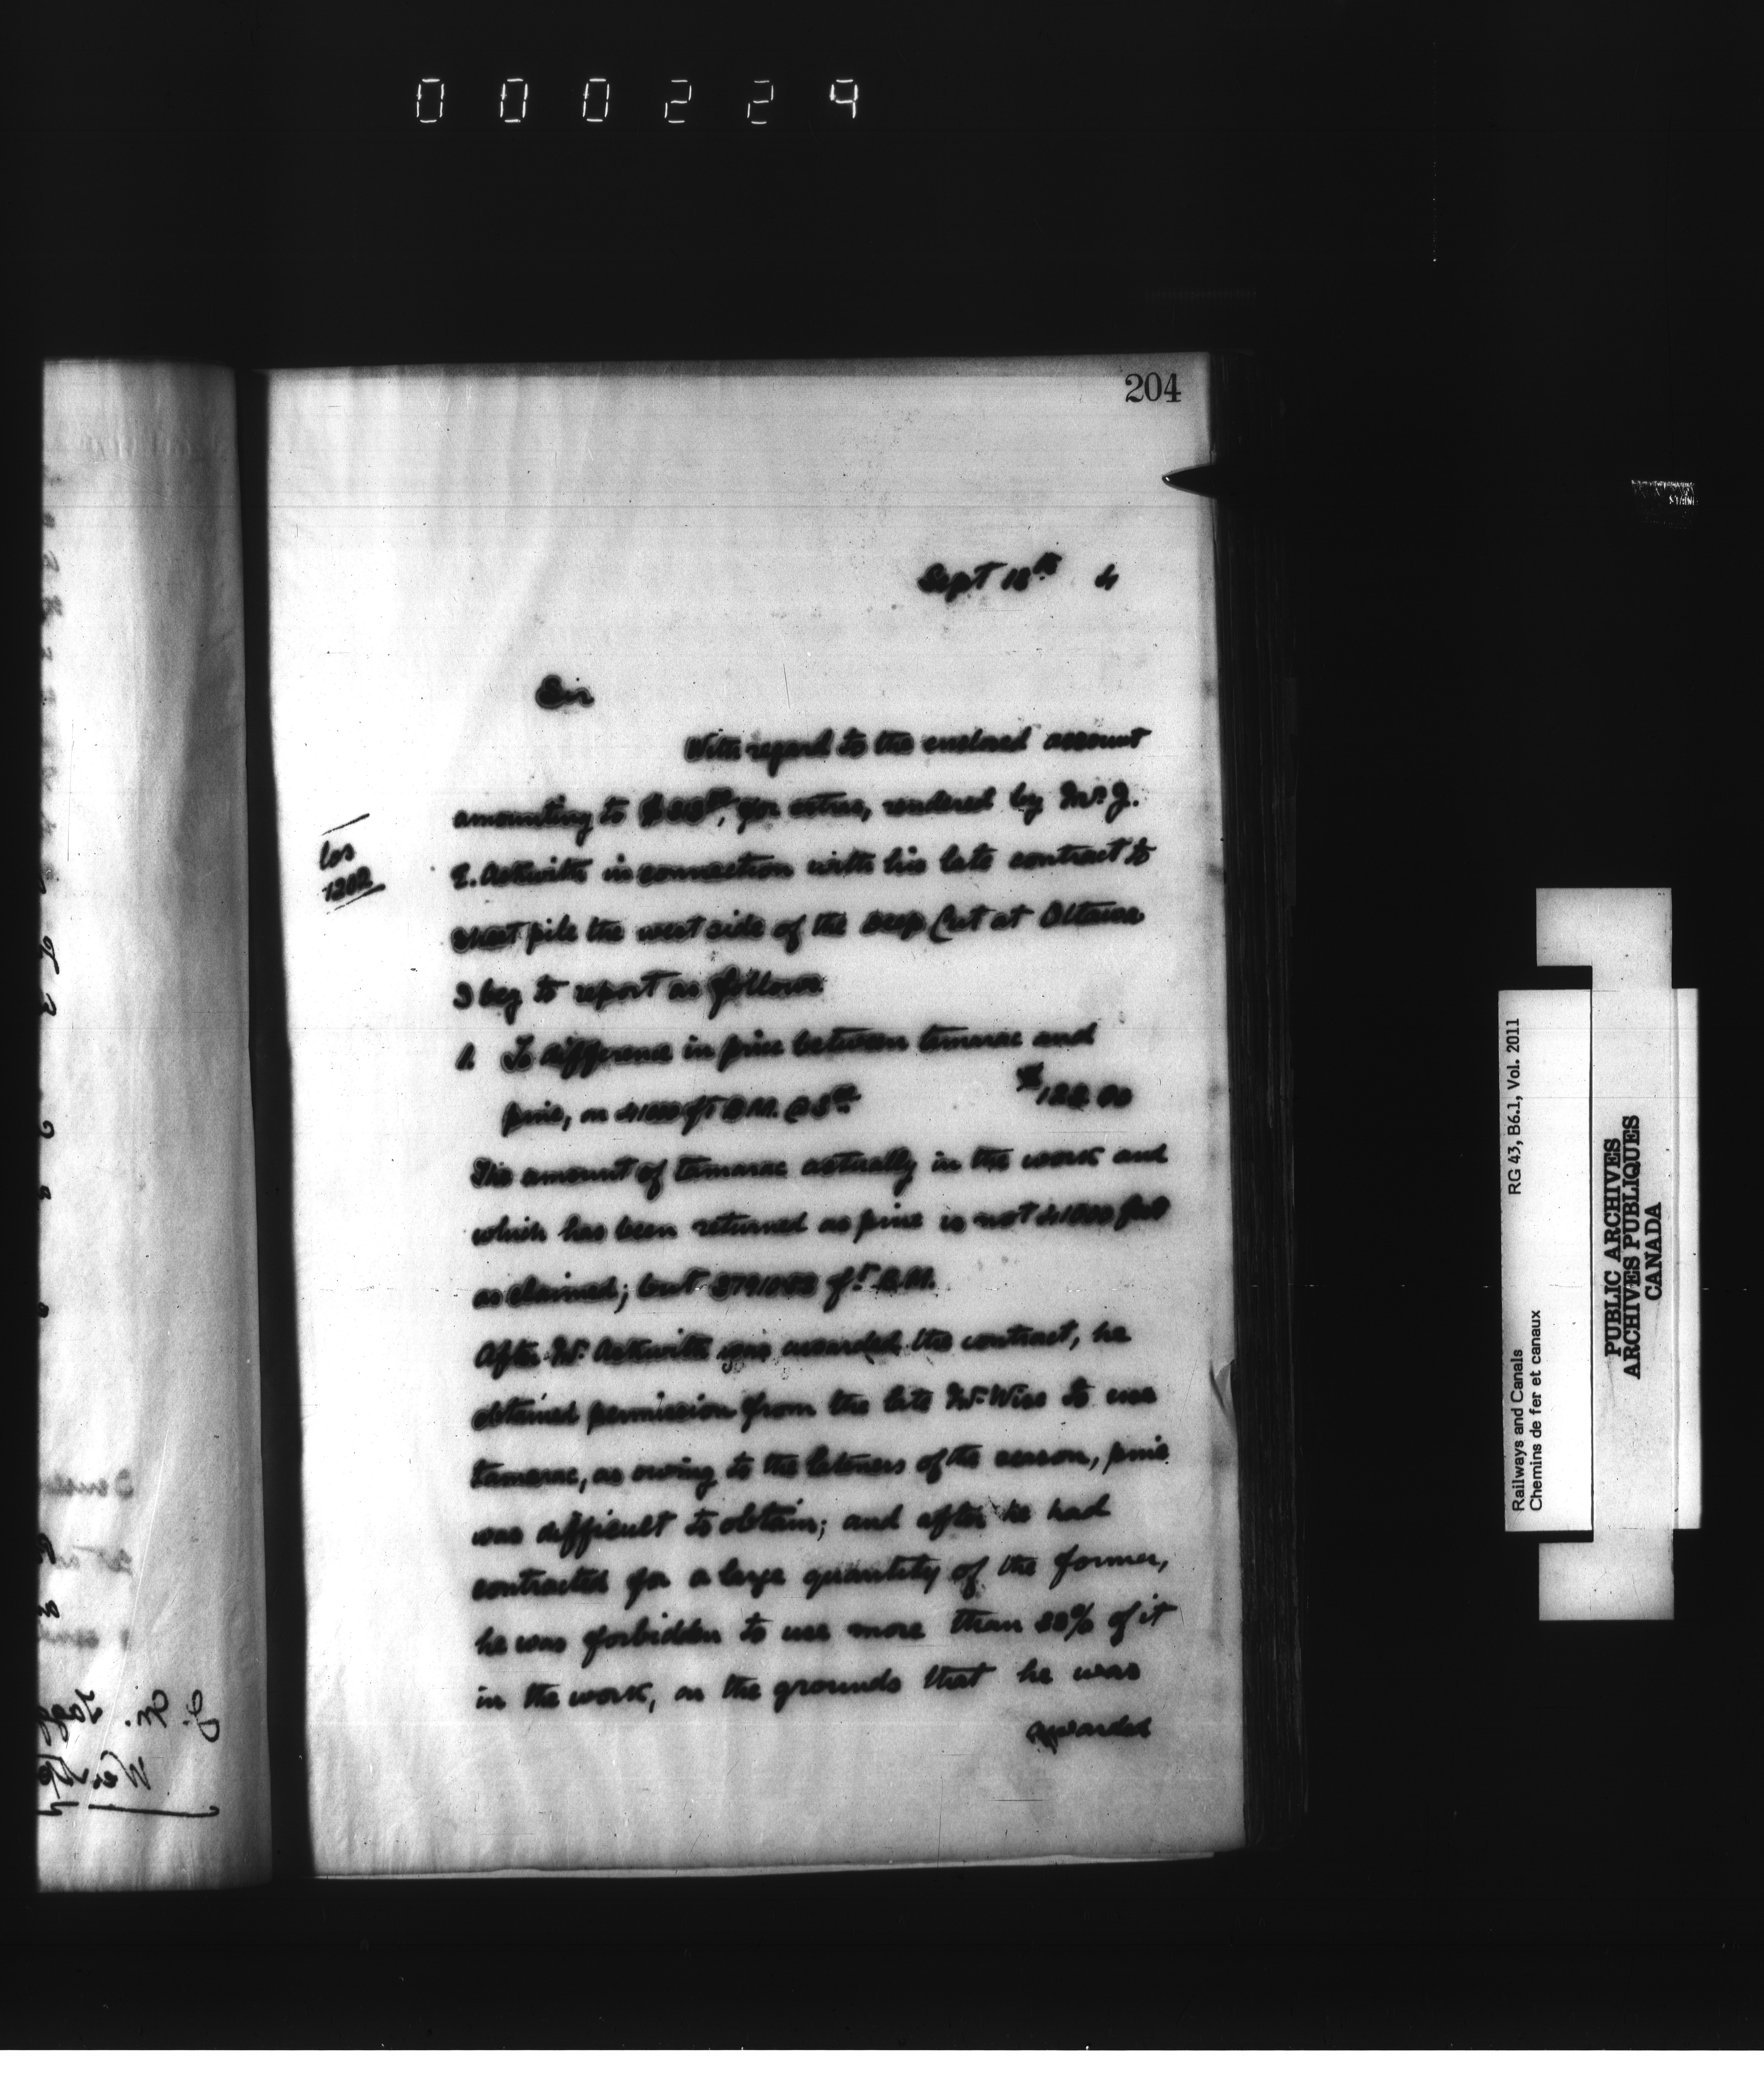 000224
204
Sept 18th 4
Sir
With regard to the enclosed account
amounting to for extras, rendered by Mr. J.
E. Askwith in connection with his late contract to
sheet pile the west side of the Deep Cut at Ottawa
I beg to report as follows
1. To difference in price between tamarac and
pine, on 41000 ft B.M. @ 3.00 $123.00
The amount of tamarac actually in the work and
which has been returned as pine is not 41000 feet
as claimed; but ft. B.M.
After Mr. Askwith was awarded the contract, he
obtained permission from the late Mr. Wise to use
tamarac, as owing to the lateness of the season, pine
was difficult to obtain; and after he had
contracted for a large quantity of the former,
he was forbidden to use more than % of it
in the work, on the grounds that he was
awarded
Railways and Canals RG 43, B6.1, Vol. 2011
Chemins de fer et canaux
PUBLIC ARCHIVES
ARCHIVES PUBLIQUES
CANADA